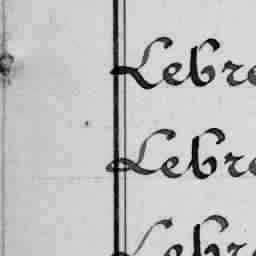 Lebre
Lebre
Lebre